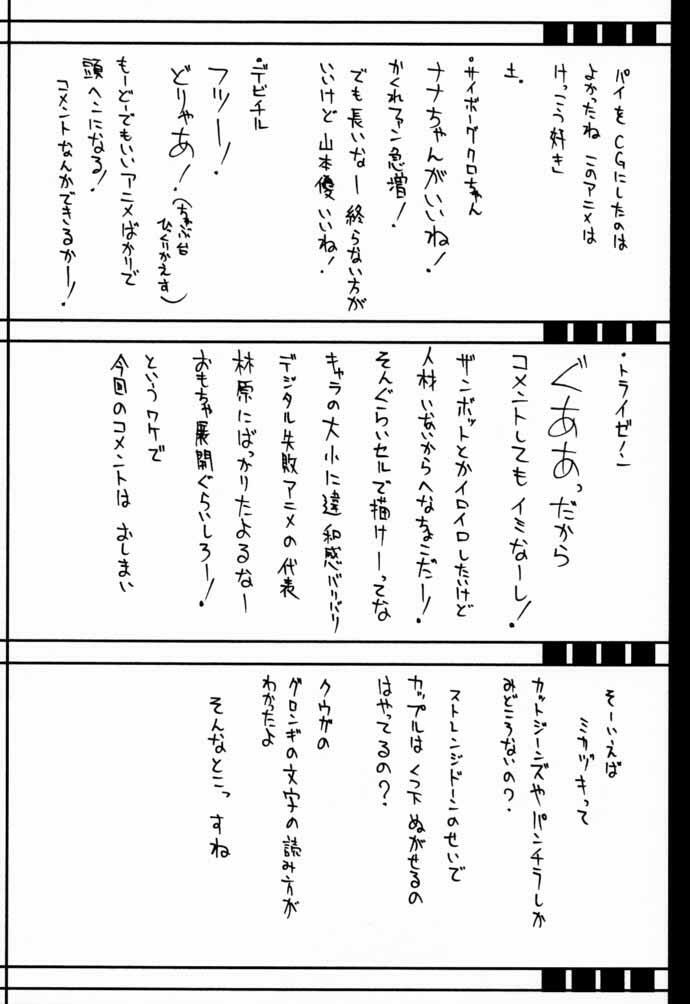 パイをCGにしたのは
よかったね このアニメは
けっこう好き」
土.
・サイボーグクロちゃん
ナナちゃんがいいね!
かくれファン急増!
でも長いなー 終らない方が
いいけど 山本優いいね!
・デビチル
フツー!
どりゃあ!(ちゃぶ台
ひっくりかえす)
もーどーでもいいアニメばかりで
頭ヘンになる!
コメントなんかできるかー!
・トライゼノン
ぐああっだから
コメントしてもイミなーし!
ザンボットとかイロイロしたいけど
人材いないからへなちょこだー!
そんぐらいセルで描けーってな
キャラの大小に違和感バリバリ
デジタル失敗アニメの代表
林原にばっかりたよるなー
おもちゃ展開ぐらいしろー!
というワケで
今回のコメントは おしまい
そーいえば
ミカヅキって
カットジーンズや パンチラしか
みどころないの?
ストレンジドーンのせいで
カップルは くつ下 ぬがせるの
はやってるの?
クウガの
グロンギの文字の読み方が
わかったよ
そんなとこっすね